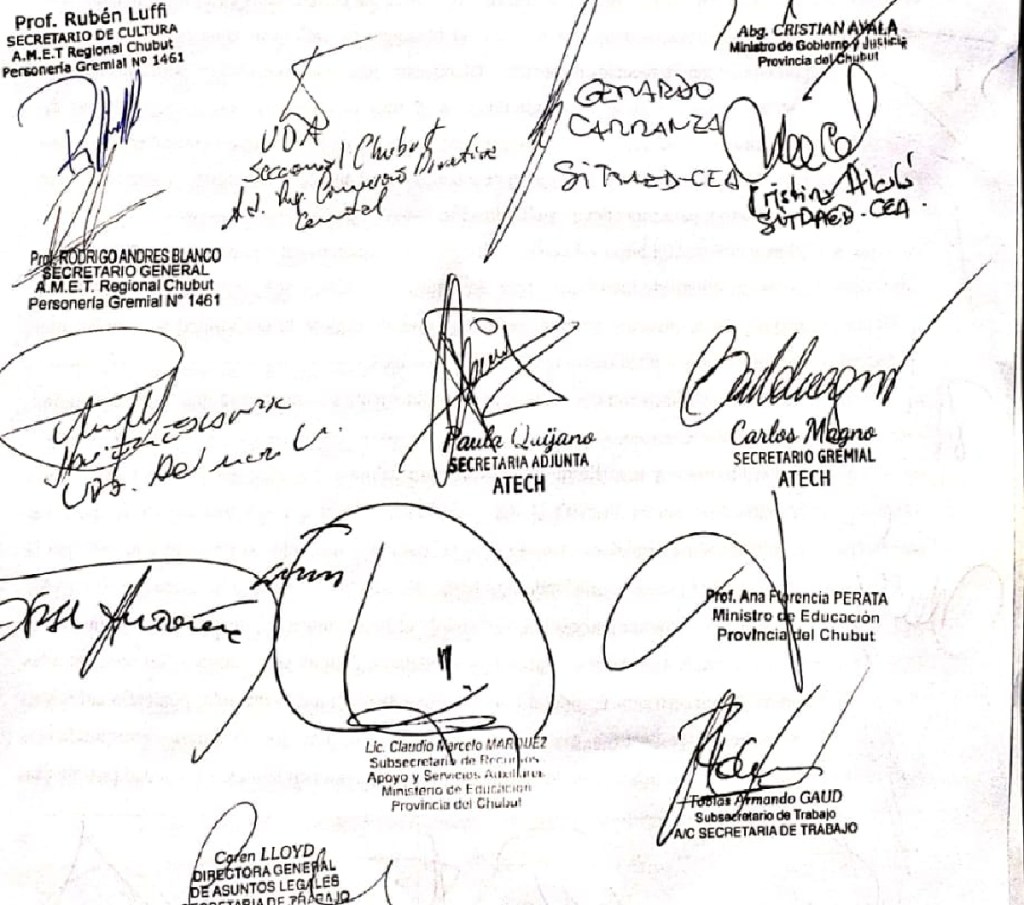 Prof. Rubén Luffi
SECRETARIO DE CULTURA
A.M.E.T Regional Chubut
Personería Gremial Nº 1461
Abg. CRISTIAN AYALA
Ministro de Gobierno y Justicia
Provincia del Chubut
UDA
Seccional Chubut
Central
GERARDO
CARRANZA
SiTRAED-CEA
Cristina
SITRAED-CEA.
Prof. RODRIGO ANDRES BLANCO
SECRETARIO GENERAL
A.M.E.T. Regional Chubut
Personería Gremial N° 1461
Paula Quijano
SECRETARIA ADJUNTA
ATECH
Carlos Magno
SECRETARIO GREMIAL
ATECH
Prof. Ana Florencia PERATA
Ministro de Educación
Provincia del Chubut
Lic. Claudio Marcelo MARQUEZ
Subsecretaria de Recursos
Apoyo y Servicios Auxiliares
Ministerio de Educación
Provincia del Chubut
Tobias Armando GAUD
Subsecretario de Trabajo
A/C SECRETARIA DE TRABAJO
Caren LLOYD
DIRECTORA GENERAL
DE ASUNTOS LEGALES
SECRETARIA DE TRABAJO